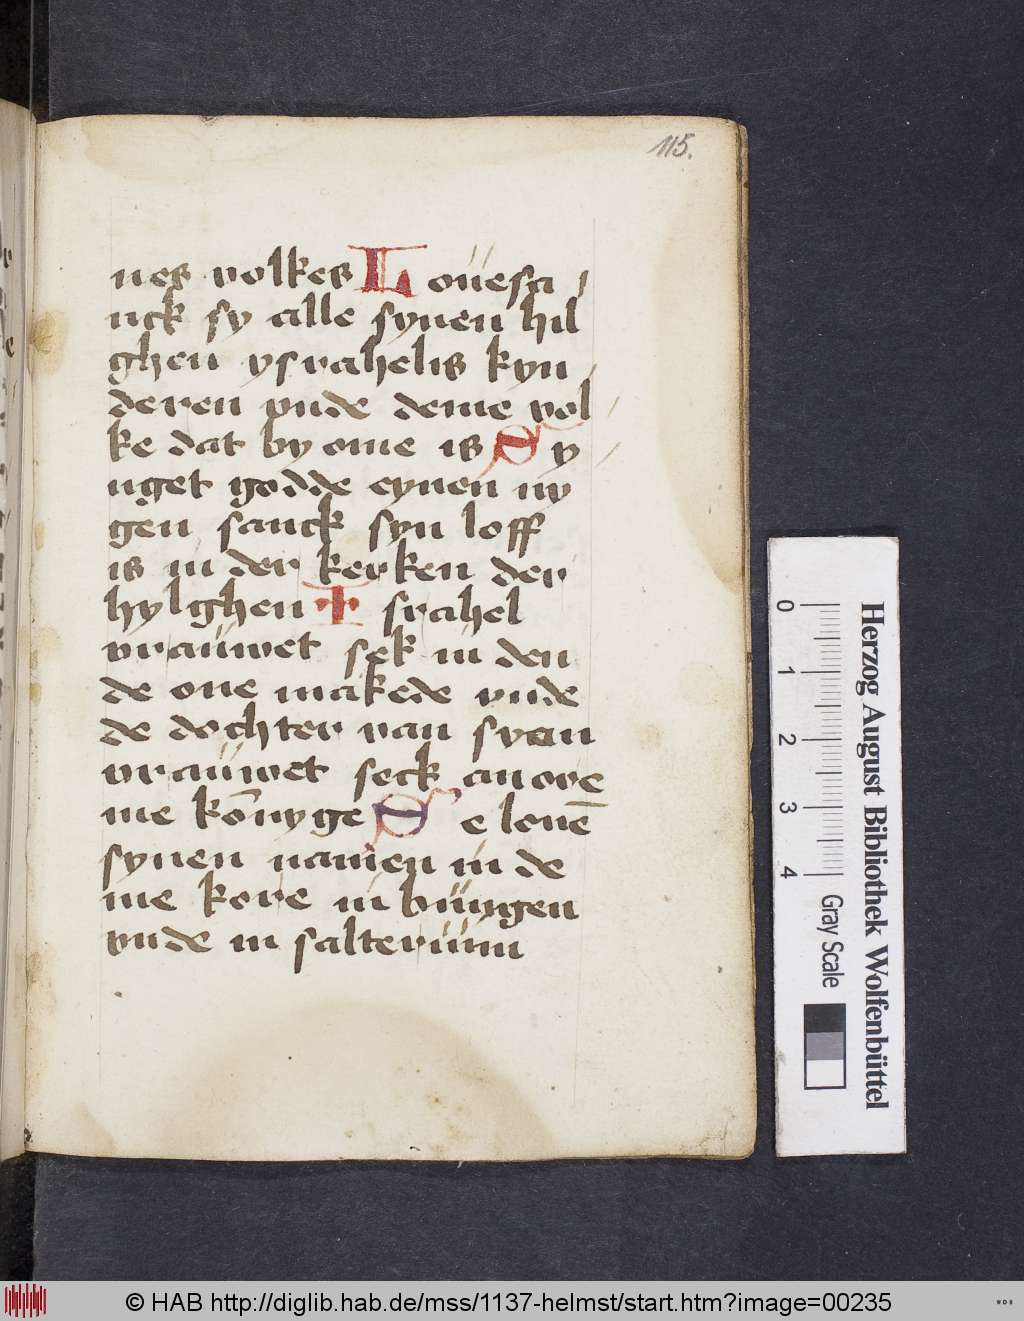 115.
nes volkes Louesa
nck sy alle synen hil
ghen ysrahelis kyn
deren vnde deme vol
ke dat by ome is Sy
nget godde eynen ny
gen sanck syn loff
is in der kerken der
hylghen Israhel
vrauwet sek in den
de one makede vnde
de dochter van syon
vrauwet seck an ore
me kōnyge Se louē
synen namen in de
me kore in bungen
vnde in salterium
Herzog August Bibliothek Wolfenbüttel
0 1 2 3 4
Gray Scale
© HAB http://diglib.hab.de/mss/1137-helmst/start.htm?image=00235